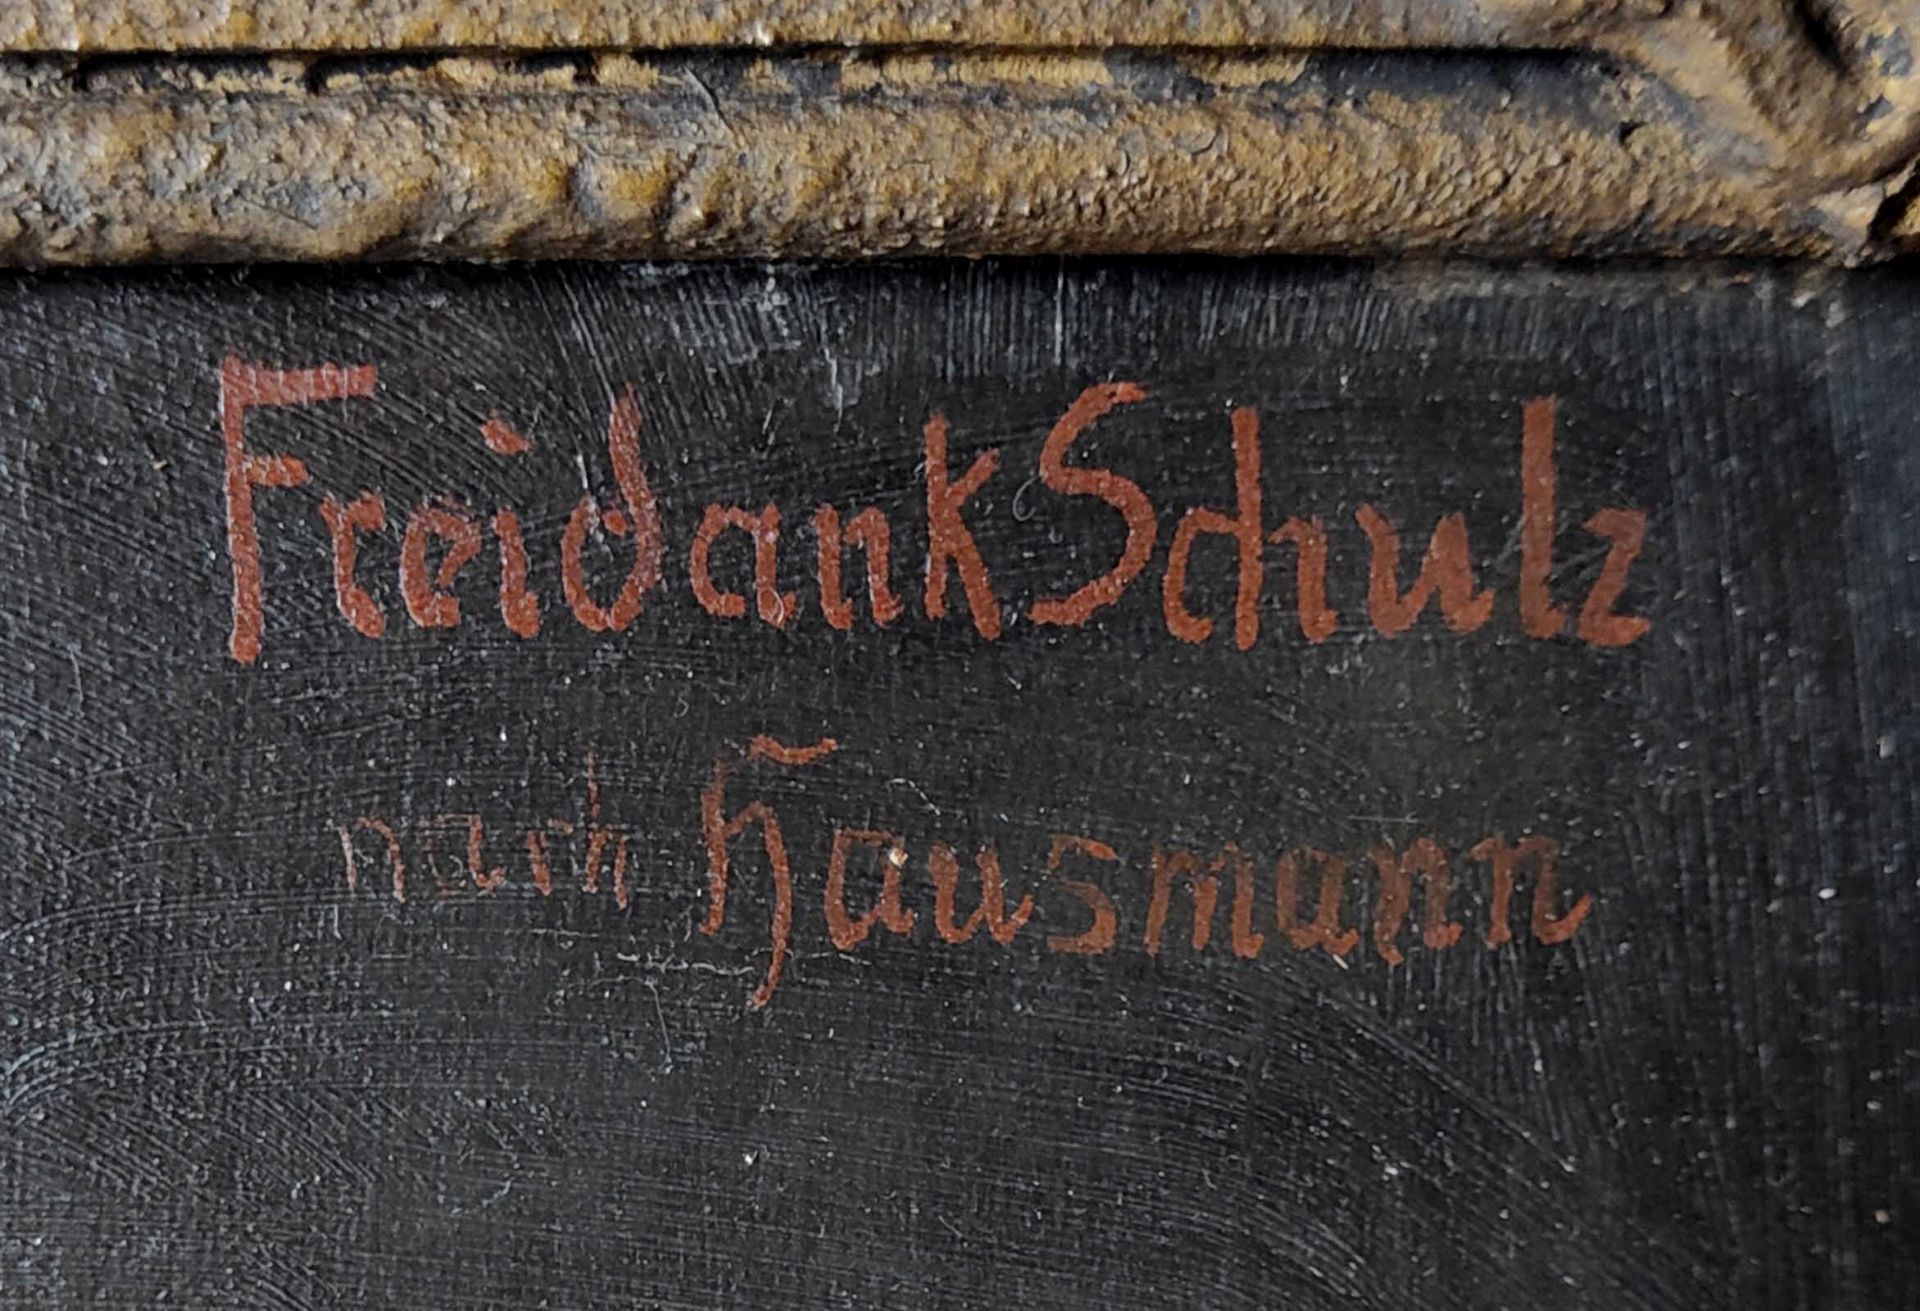 Freidank Schulz
nach Hausmann